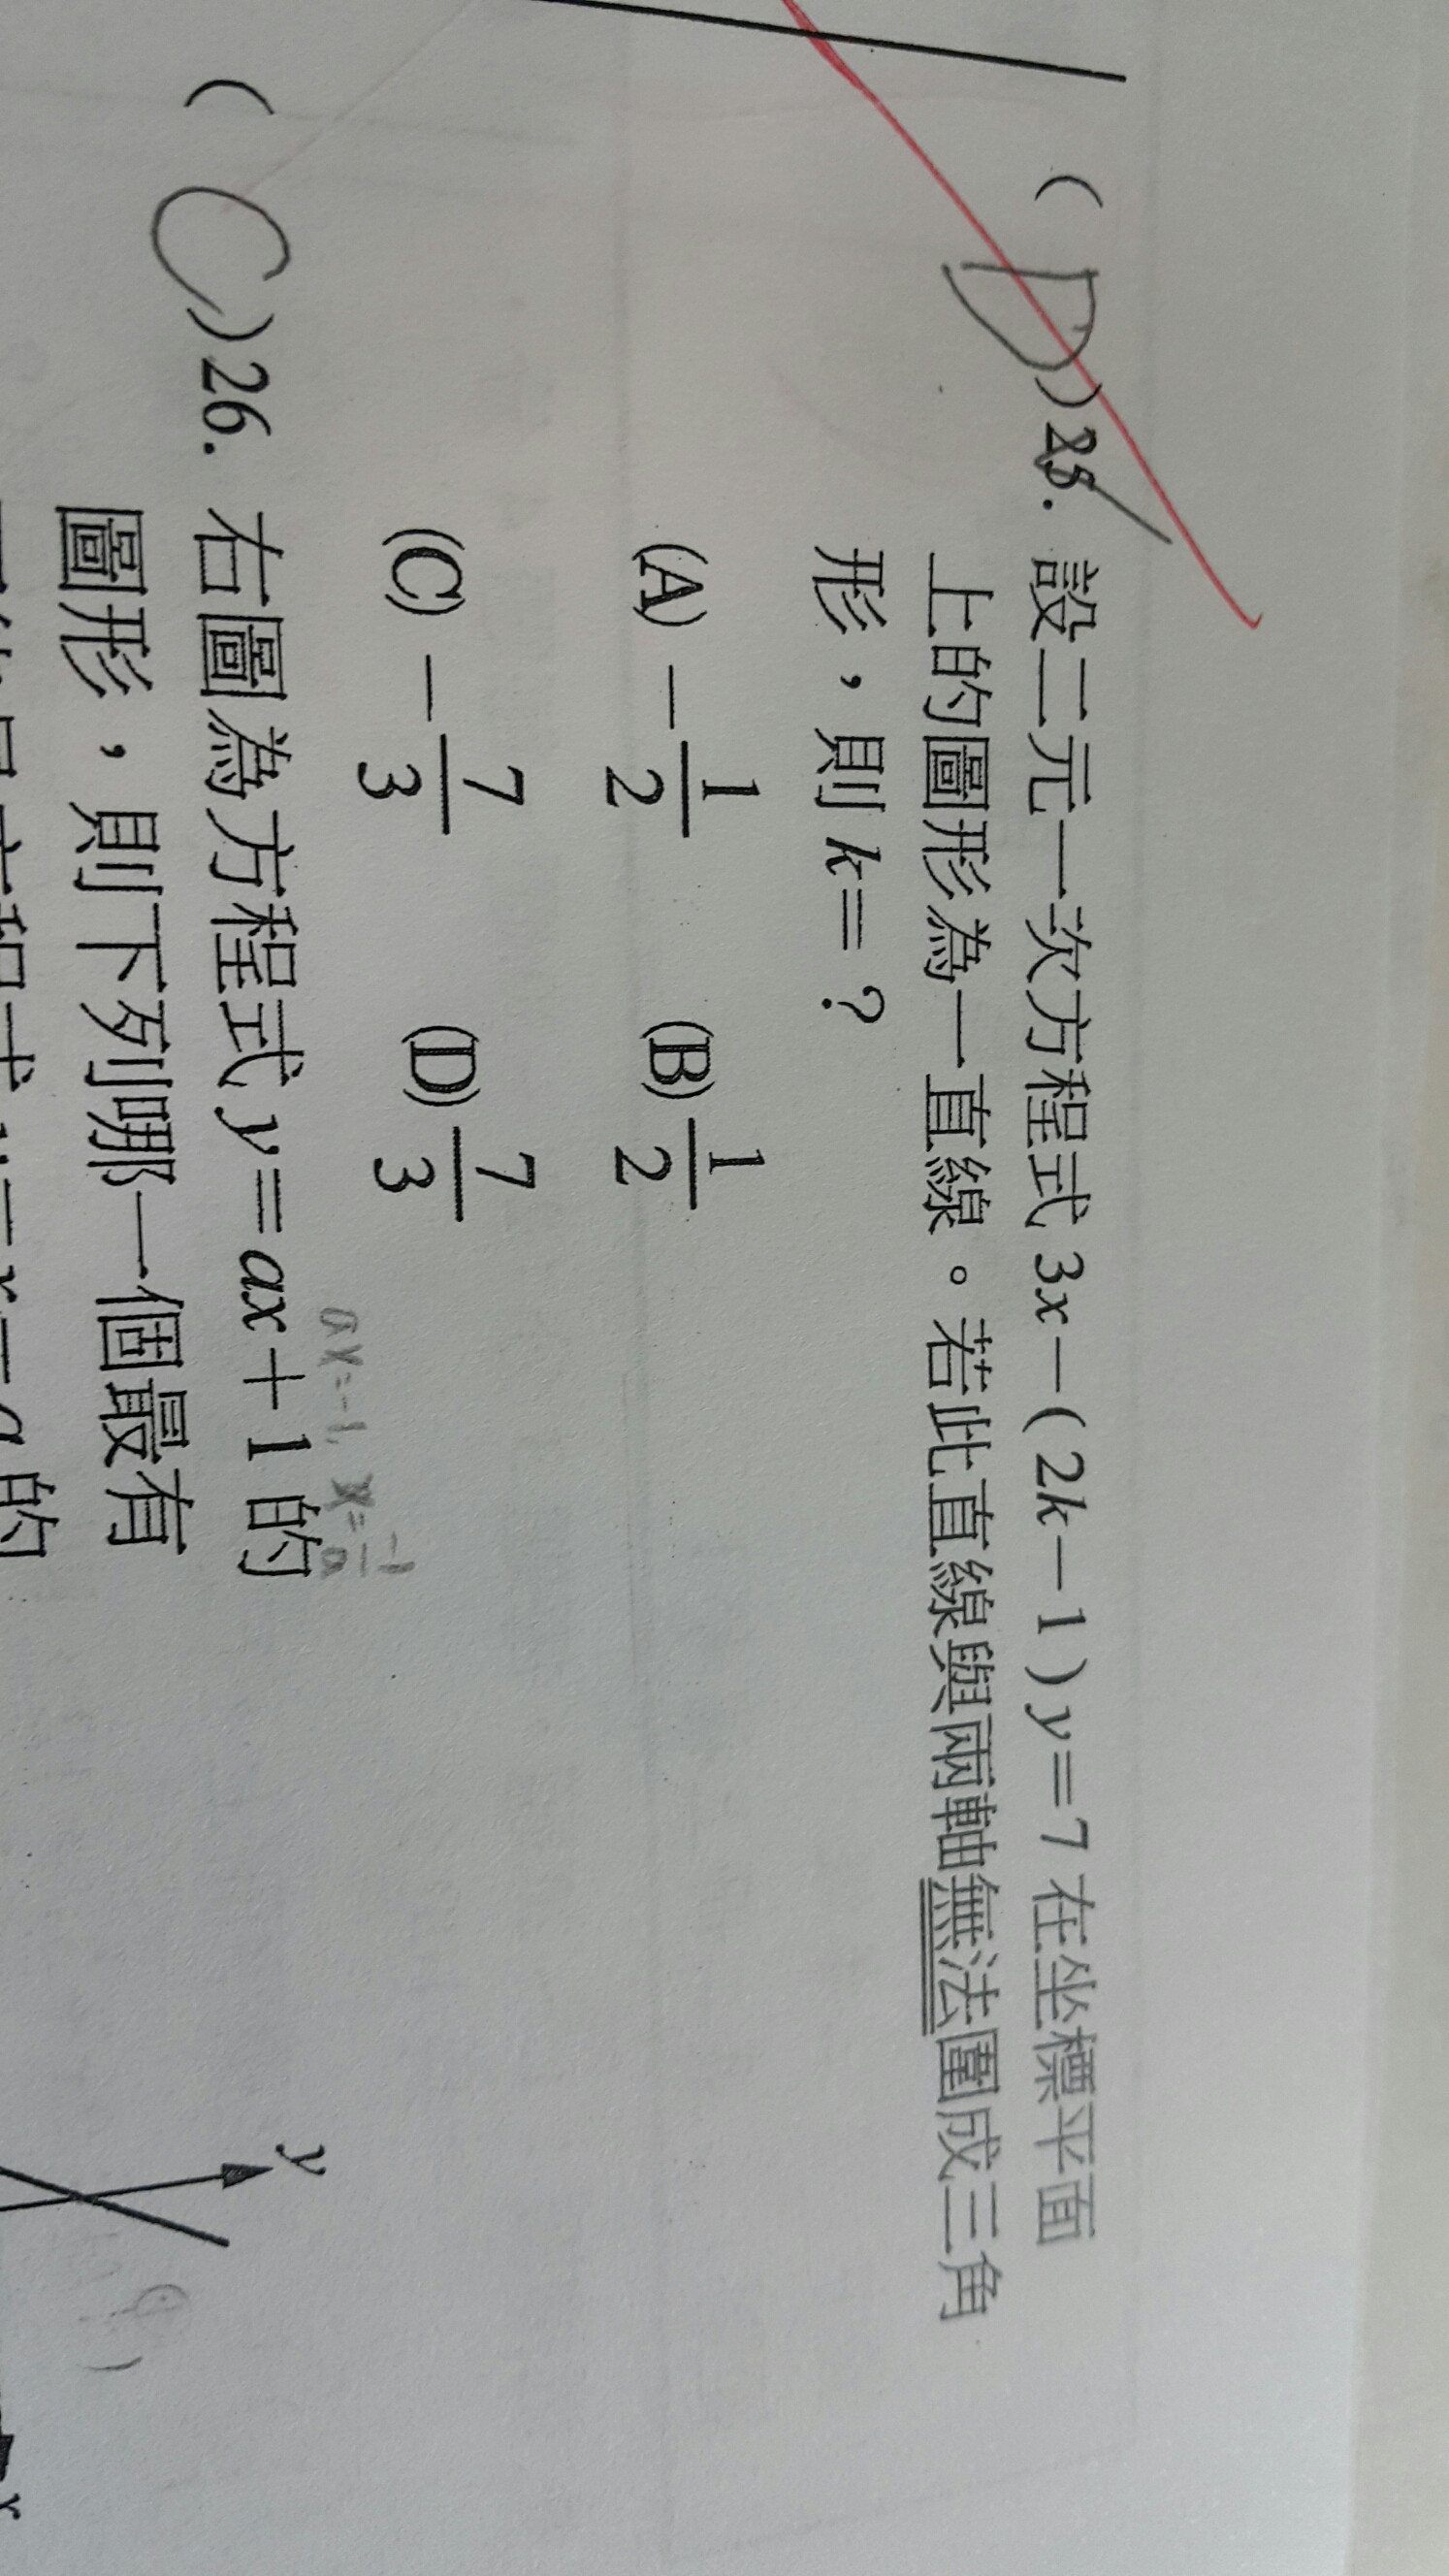 ( D )25. 設二元一次方程式 3x－(2k－1)y＝7 在坐標平面
上的圖形為一直線。若此直線與兩軸無法圍成三角
形，則 k＝？
(A) －1/2 (B) 1/2
(C) －7/3 (D) 7/3
ax=-1, x=-1/a
( C )26. 右圖為方程式 y＝ax＋1 的
圖形，則下列哪一個最有
y
x